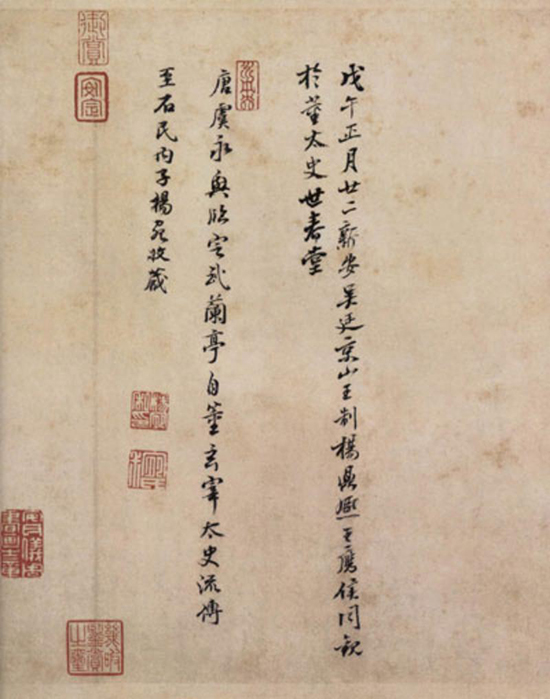 戊午正月廿二新安吳廷京山王制楊鼎熈王應侯同觀
於董太史世春堂
唐虞永興臨定武蘭亭自董玄宰太史流傳
至石民內子楊宛收藏
御賞
安定